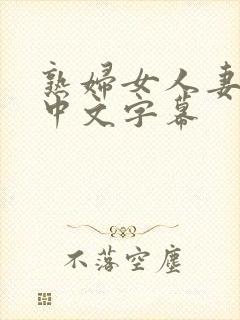 熟婦女人妻
中文字幕
不落空塵